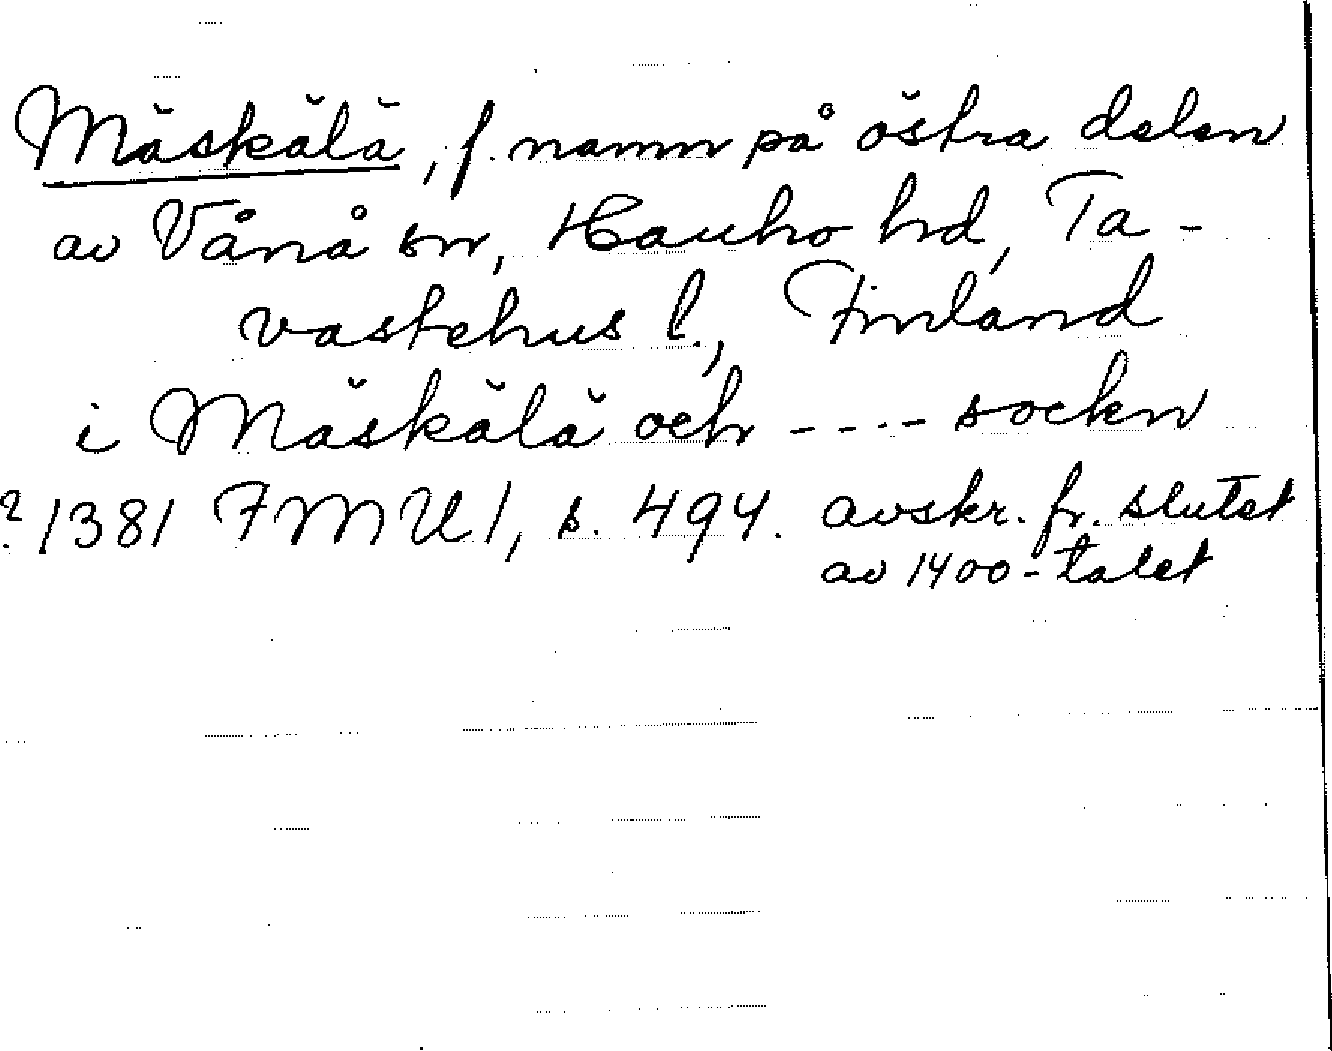 Mäskälä, f. namn på östra delen
av Vånå sn, Hauho hd, Ta-
vastehus l., Finland
i Mäskälä och ---- sockn
? 1381 FMU 1, s. 494. avskr. fr. slutet
av 1400-talet